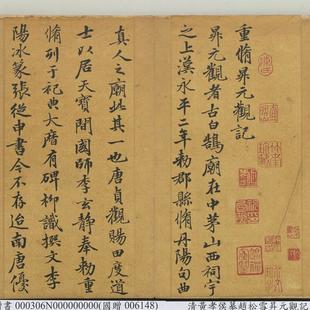 重脩昇元觀記
昇元觀者古白鵠廟在中茅山西祠宇
之上漢永平二年勅郡縣脩丹陽句曲
真人之廟此其一也唐貞觀賜田度道
士以居天寶間國師李玄靜奉勅重
脩列于祀典大曆有碑柳識撰文李
陽冰篆張從申書今不存迨南唐優
書 000306N000000000(國贈 006148) 清黃孝侯摹趙松雪昇元觀記